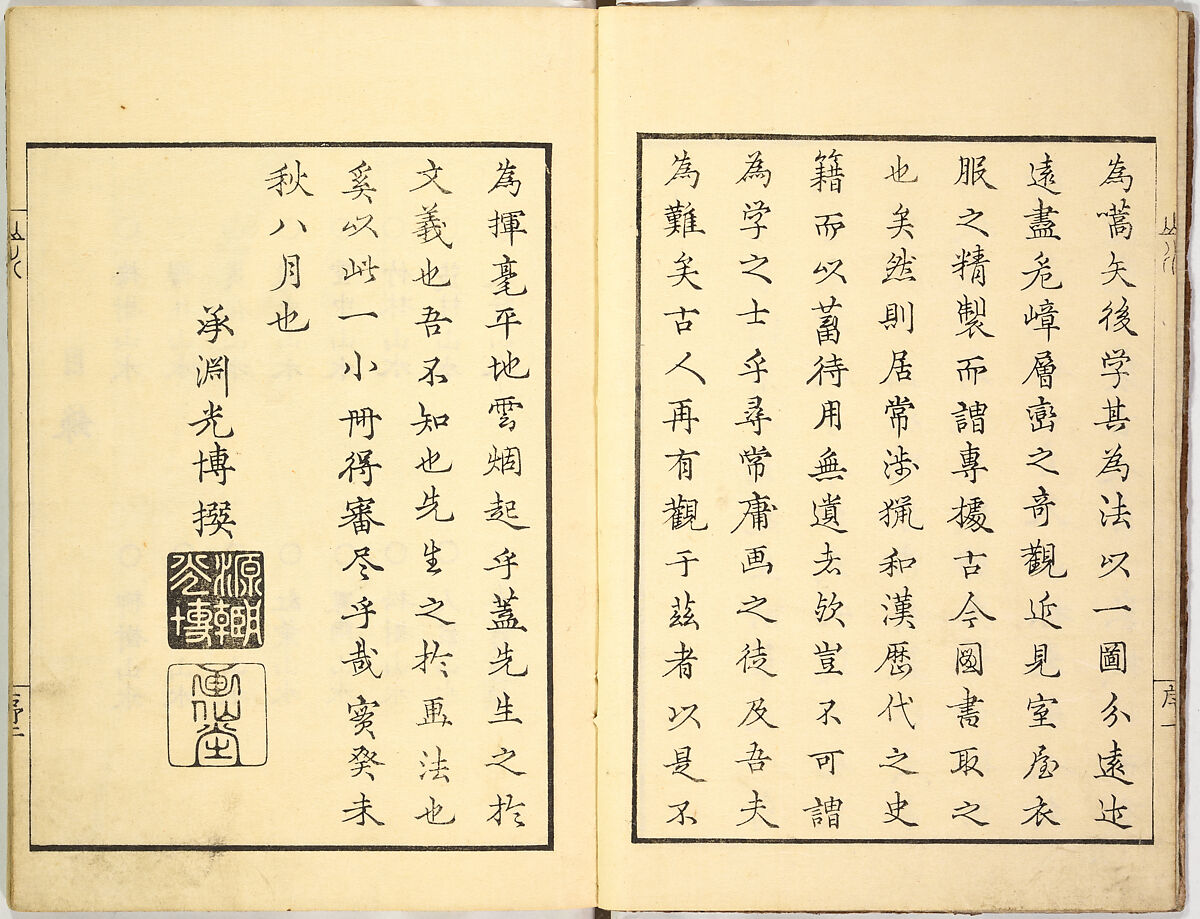 山水 序一
為嚆矢後学其為法以一圖分遠近
遠盡危嶂層巒之奇觀近見室屋衣
服之精製而謂專據古今圖書取之
也矣然則居常渉猟和漢歴代之史
籍而以蓄待用無遺者欤豈不可謂
為学之士乎尋常庸画之徒及吾夫
為難矣古人再有觀于茲者以是不
為揮毫平地雲烟起乎蓋先生之於
文義也吾不知也先生之於画法也
奚以此一小冊得審尽乎哉寔癸未
秋八月也
承淵光博撰
山水 序二